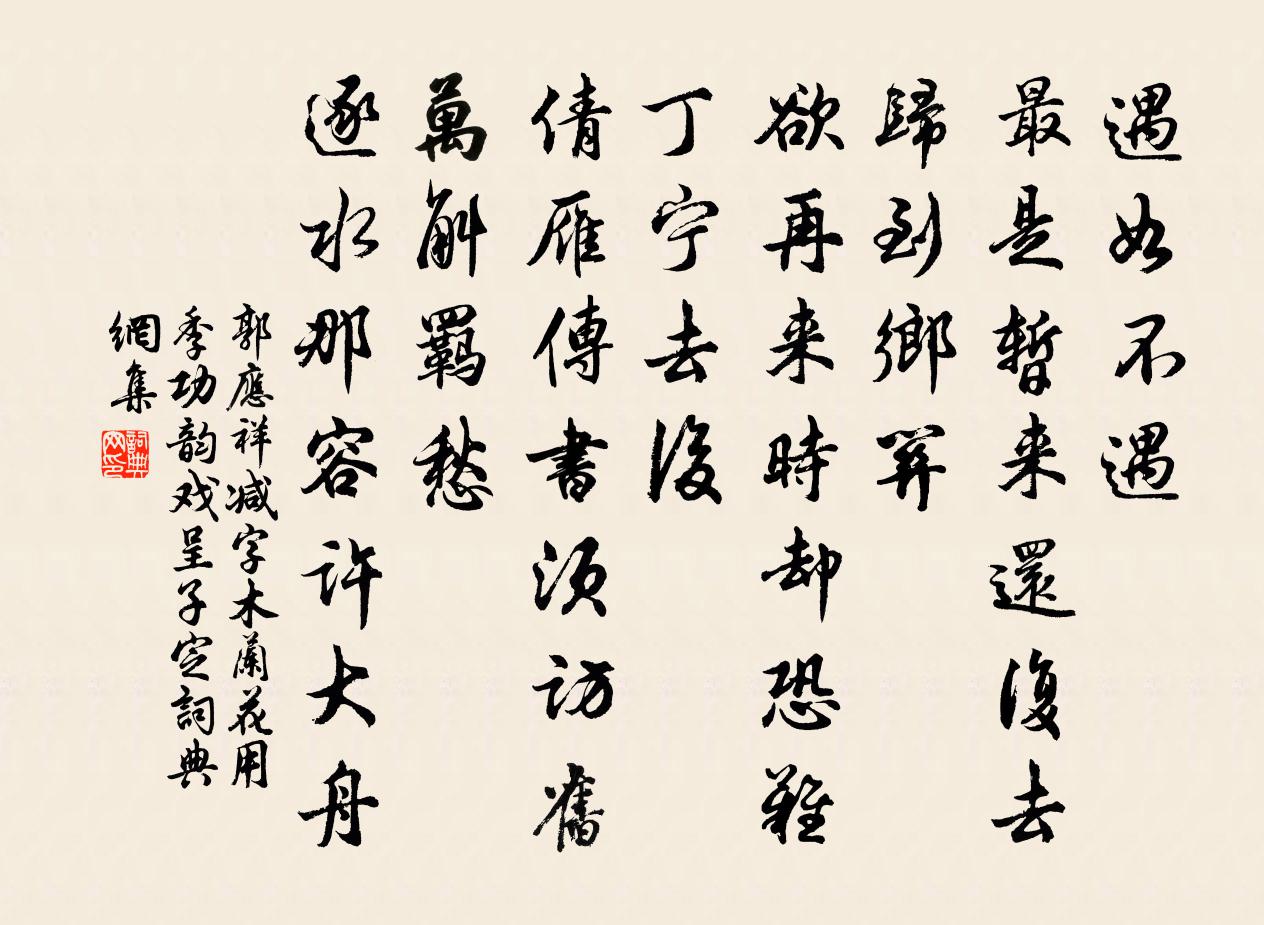 遇如不遇
最是暫来還復去
歸到鄉關
欲再来時却恐難
丁宁去後
倩雁傳書須訪舊
萬斛羈愁
逐水那容許大舟
郭應祥减字木蘭花用
季功韵戏呈子定詞典
網集
詞典網印